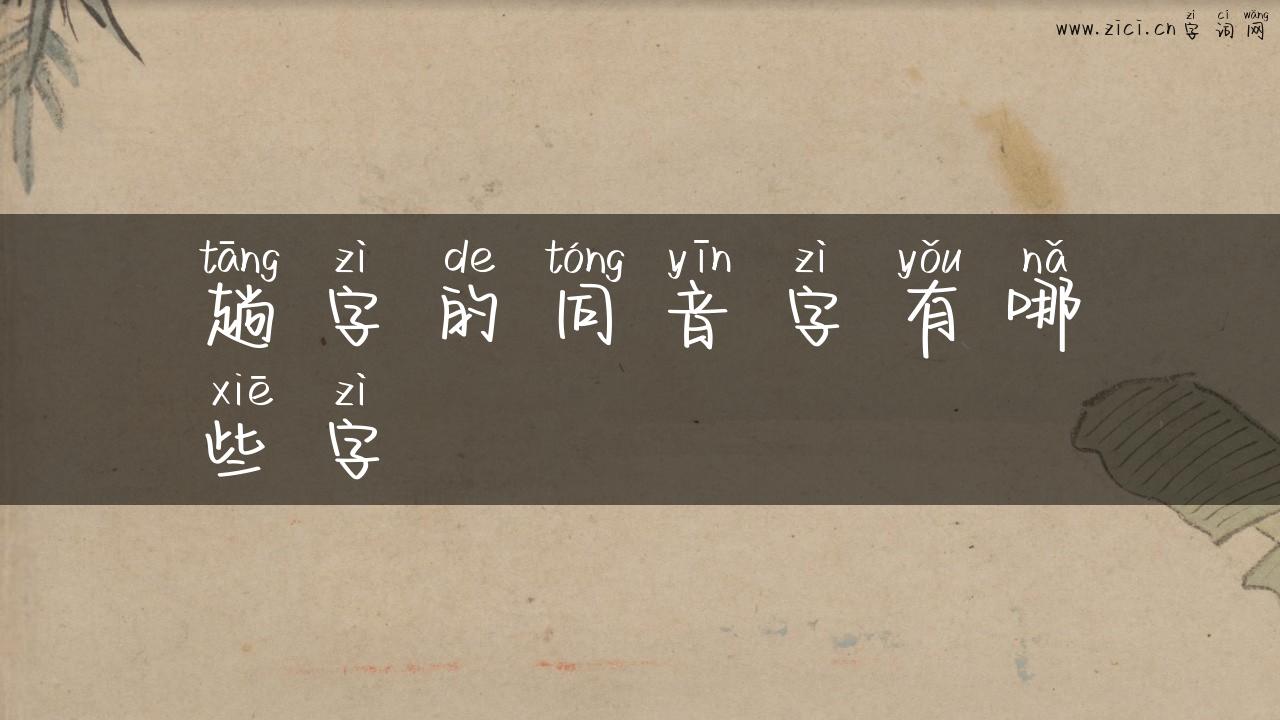 zì cí wǎng
www.zici.cn 字词网
tāng zì de tóng yīn zì yǒu nǎ
趟字的同音字有哪
xiē zì
些字